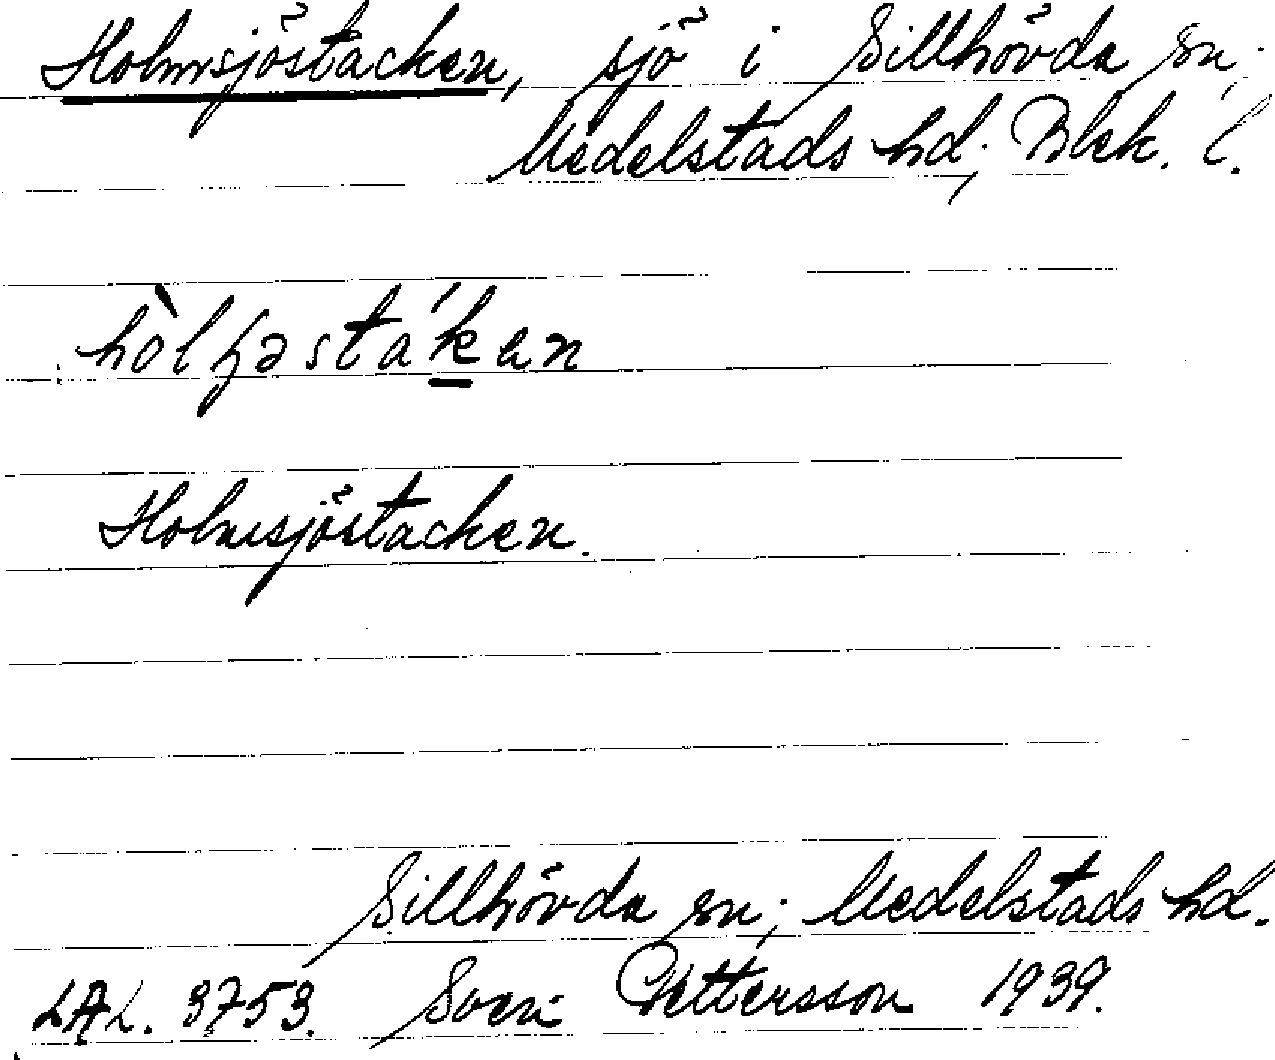 Holmsjöstacken, sjö i Sillhövda sn;
Medelstads hd; Blek. l.
Holmsjöstacken.
Sillhövda sn; Medelstads hd.
LAL. 3753. Sven Pettersson 1939.